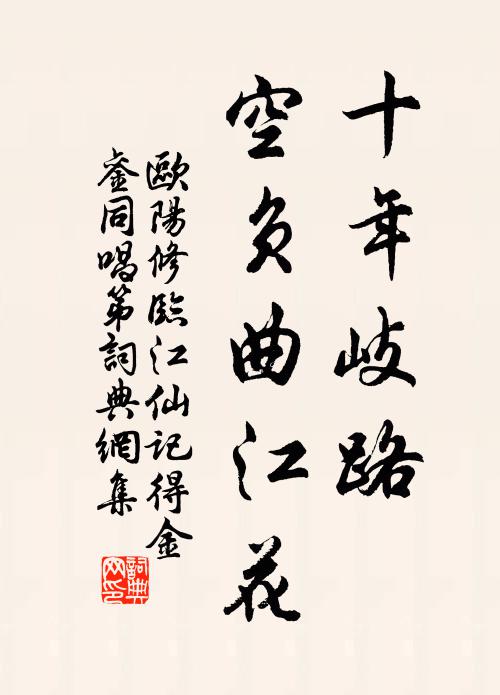 十年歧路
空負曲江花
歐陽修臨江仙記得金
鑾同唱第詞典網集
詞典
网印